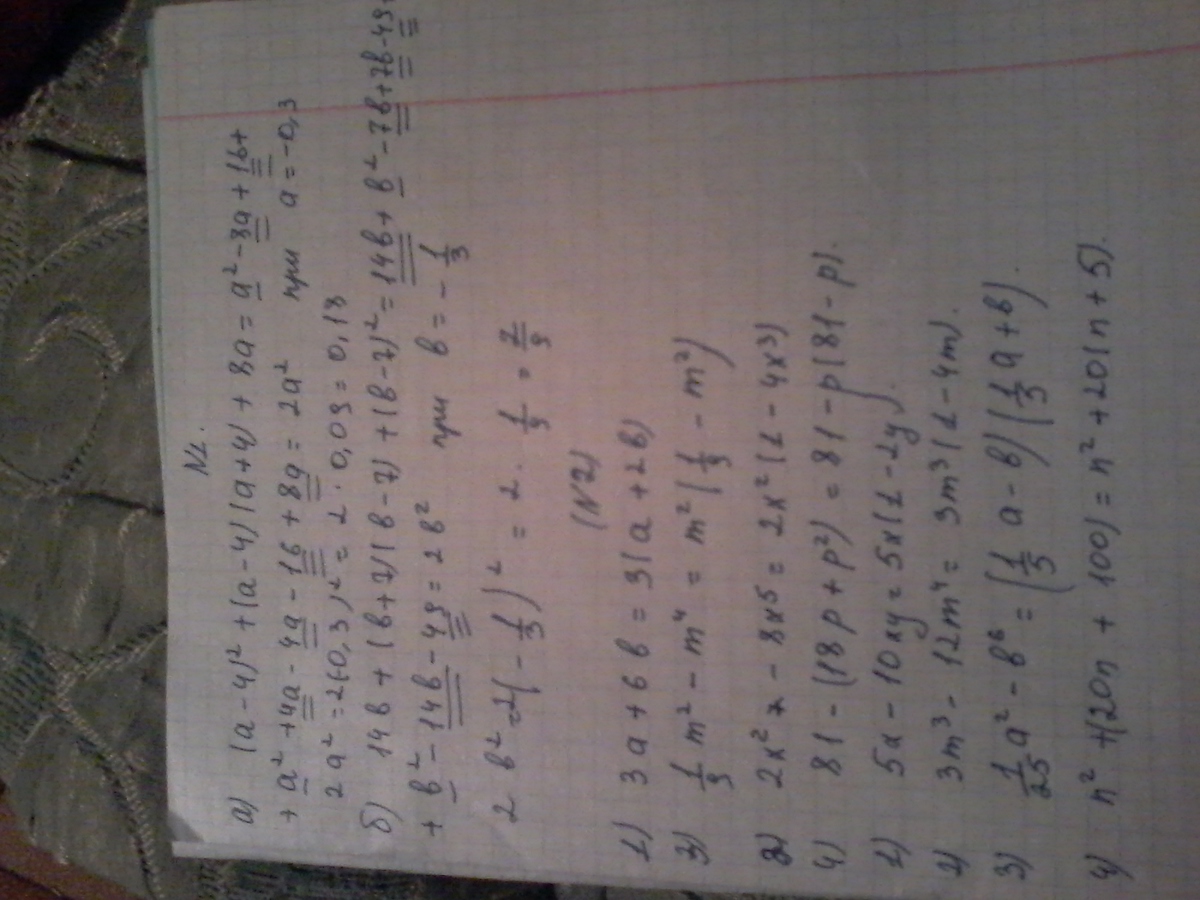 N1.
а) (a-4)² + (a-4)(a+4) + 8a = a² - 8a + 16 +
+ a² + 4a - 4a - 16 + 8a = 2a² при a = -0,3
2a² = 2(-0,3)² = 2 · 0,09 = 0,18
б) 14b + (b+7)(b-7) + (b-7)² = 14b + b² - 7b + 7b - 49
+ b² - 14b - 49 = 2b² при b = -1/3
2b² = 2(-1/3)² = 2 · 1/9 = 2/9
(N2)
1) 3a + 6b = 3(a + 2b)
3) 1/9 m² - m⁴ = m²(1/9 - m²)
2) 2x² - 8x⁵ = 2x²(1 - 4x³)
4) 81 - (18p + p²) = 81 - p(81 - p).
1) 5x - 10xy = 5x(1 - 2y).
2) 3m³ - 12m⁴ = 3m³(1 - 4m).
3) 1/25 a² - b⁶ = (1/5 a - b)(1/5 a + b).
4) n² + (20n + 100) = n² + 20(n + 5).